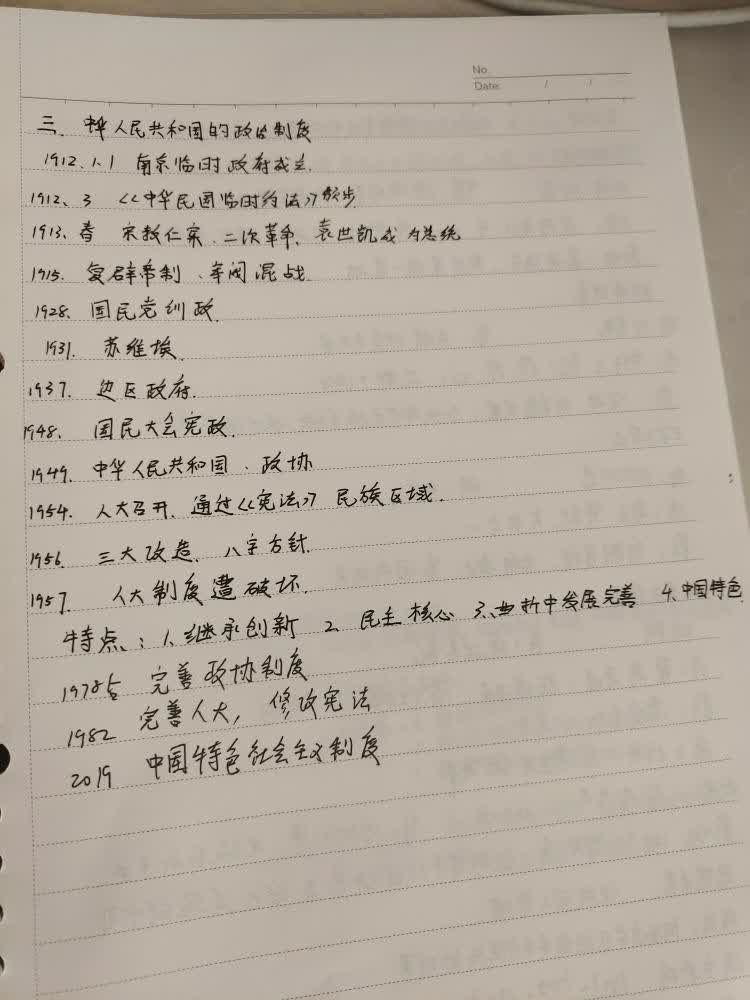 No.
Date: / /
三、中华人民共和国的政治制度
1912.1.1 南京临时政府成立.
1912、3 《中华民国临时约法》颁步
1913、春 宋教仁案、二次革命、袁世凯成为总统
1915. 复辟帝制、军阀混战.
1928. 国民党训政.
1931. 苏维埃.
1937. 边区政府.
1948. 国民大会宪政.
1949. 中华人民共和国、政协
1954. 人大召开、通过《宪法》 民族区域.
1956. 三大改造、八字方针.
1957. 人大制度遭破坏.
特点:1、继承创新 2、民主核心 3、曲折中发展完善 4、中国特色
1978后 完善政协制度
1982 完善人大, 修改宪法
2019 中国特色社会主义制度